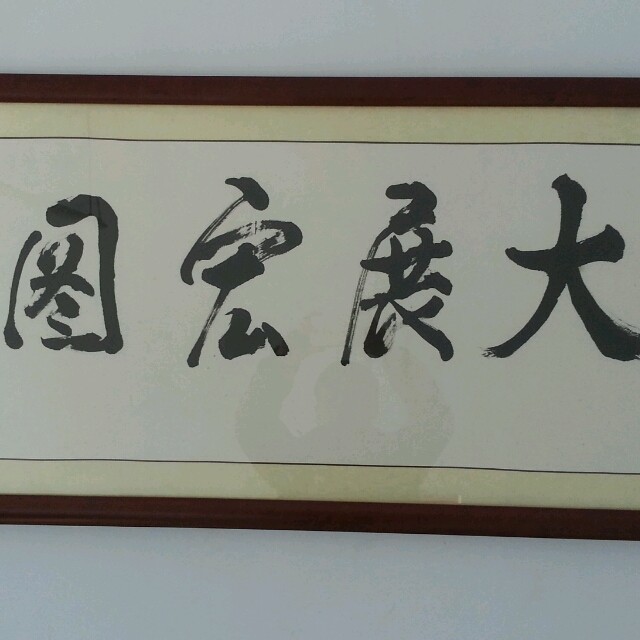 大展宏图